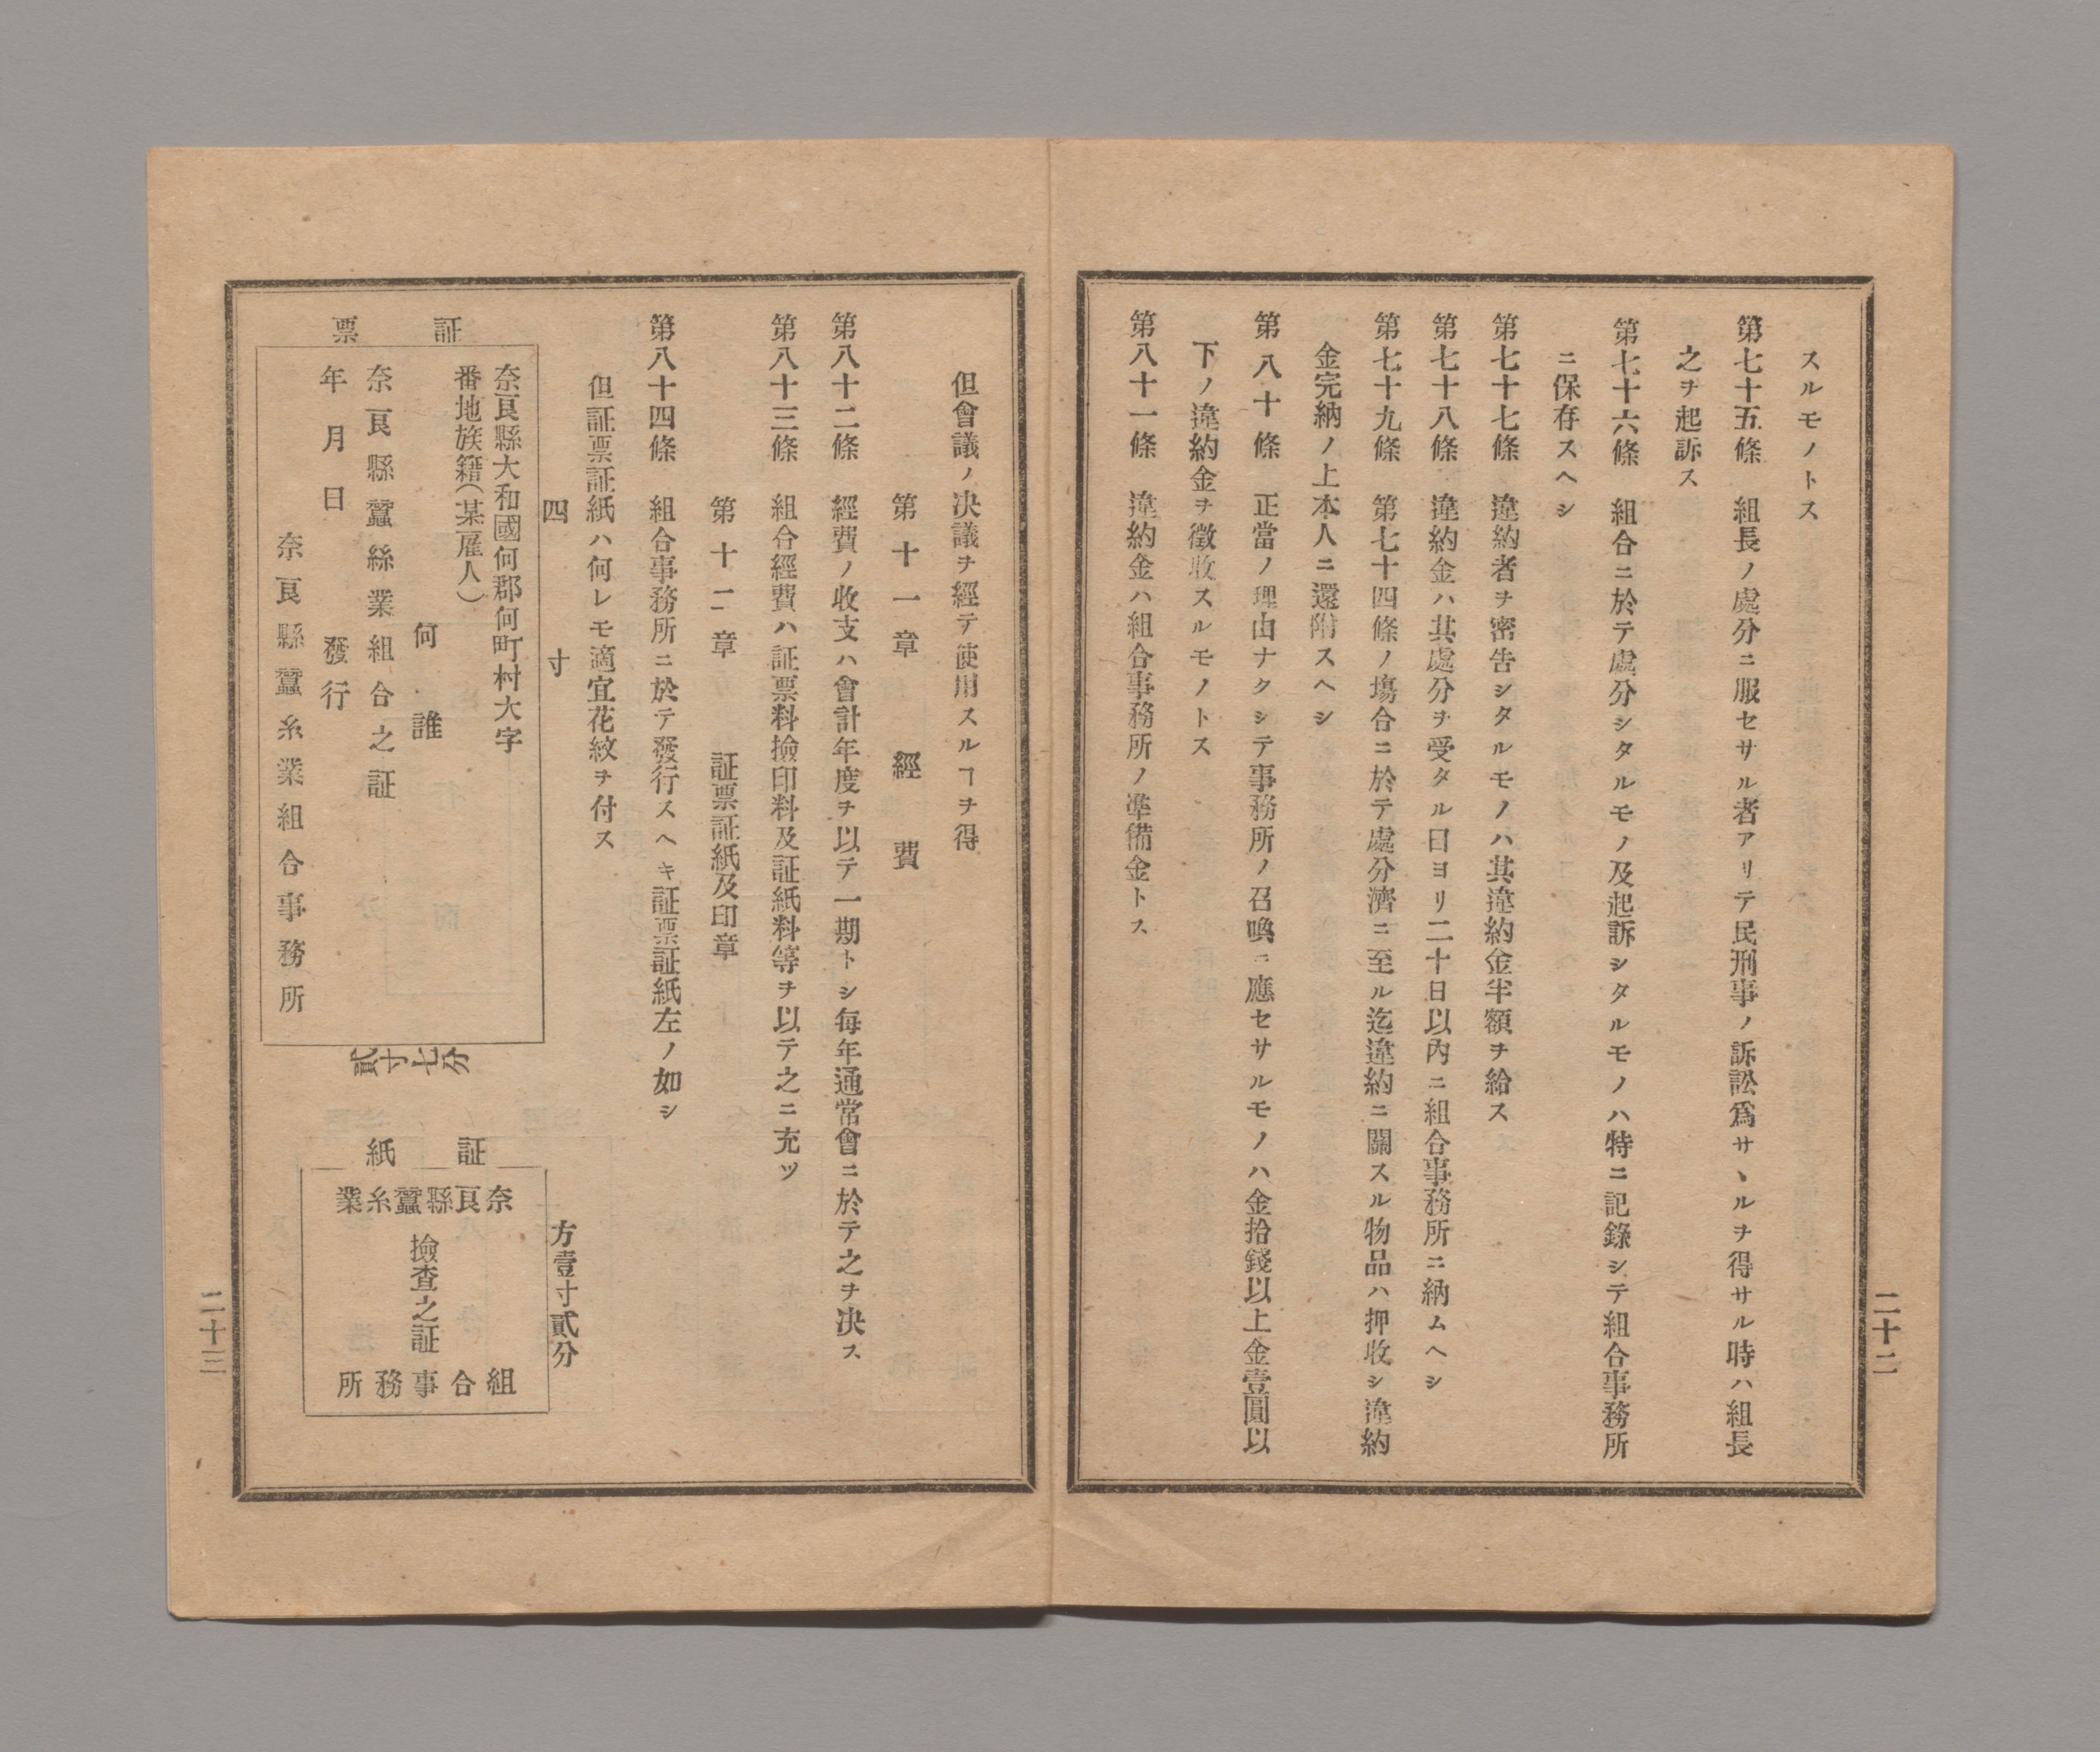 スルモノトス
第七十五條　組長ノ處分ニ服セサル者アリテ民刑事ノ訴訟爲サヽルヲ得サル時ハ組長
之ヲ起訴ス
第七十六條　組合ニ於テ處分シタルモノ及起訴シタルモノハ特ニ記錄シテ組合事務所
ニ保存スヘシ
第七十七條　違約者ヲ密告シタルモノハ其違約金半額ヲ給ス
第七十八條　違約金ハ其處分ヲ受タル日ヨリ二十日以內ニ組合事務所ニ納ムヘシ
第七十九條　第七十四條ノ塲合ニ於テ處分濟ニ至ル迄違約ニ關スル物品ハ押收シ違約
金完納ノ上本人ニ還附スヘシ
第八十條　正當ノ理由ナクシテ事務所ノ召喚ニ應セサルモノハ金拾錢以上金壹圓以
下ノ違約金ヲ徵收スルモノトス
第八十一條　違約金ハ組合事務所ノ準備金トス
二十二
但會議ノ决議ヲ經テ使用スルヿヲ得
第十一章　經費
第八十二條　經費ノ收支ハ會計年度ヲ以テ一期トシ每年通常會ニ於テ之ヲ决ス
第八十三條　組合經費ハ証票料撿印料及証紙料等ヲ以テ之ニ充ツ
第十二章　証票証紙及印章
第八十四條　組合事務所ニ於テ發行スヘキ証票証紙左ノ如シ
但証票証紙ハ何レモ適宜花紋ヲ付ス
四寸
証票
奈良縣大和國何郡何町村大字
番地族籍（某雇人）
何誰
奈良縣蠶絲業組合之証
年月日　發行
奈良縣蠶糸業組合事務所
貳寸七分
方壹寸貳分
証紙
奈良縣蠶糸業
撿查之証
組合事務所
二十三